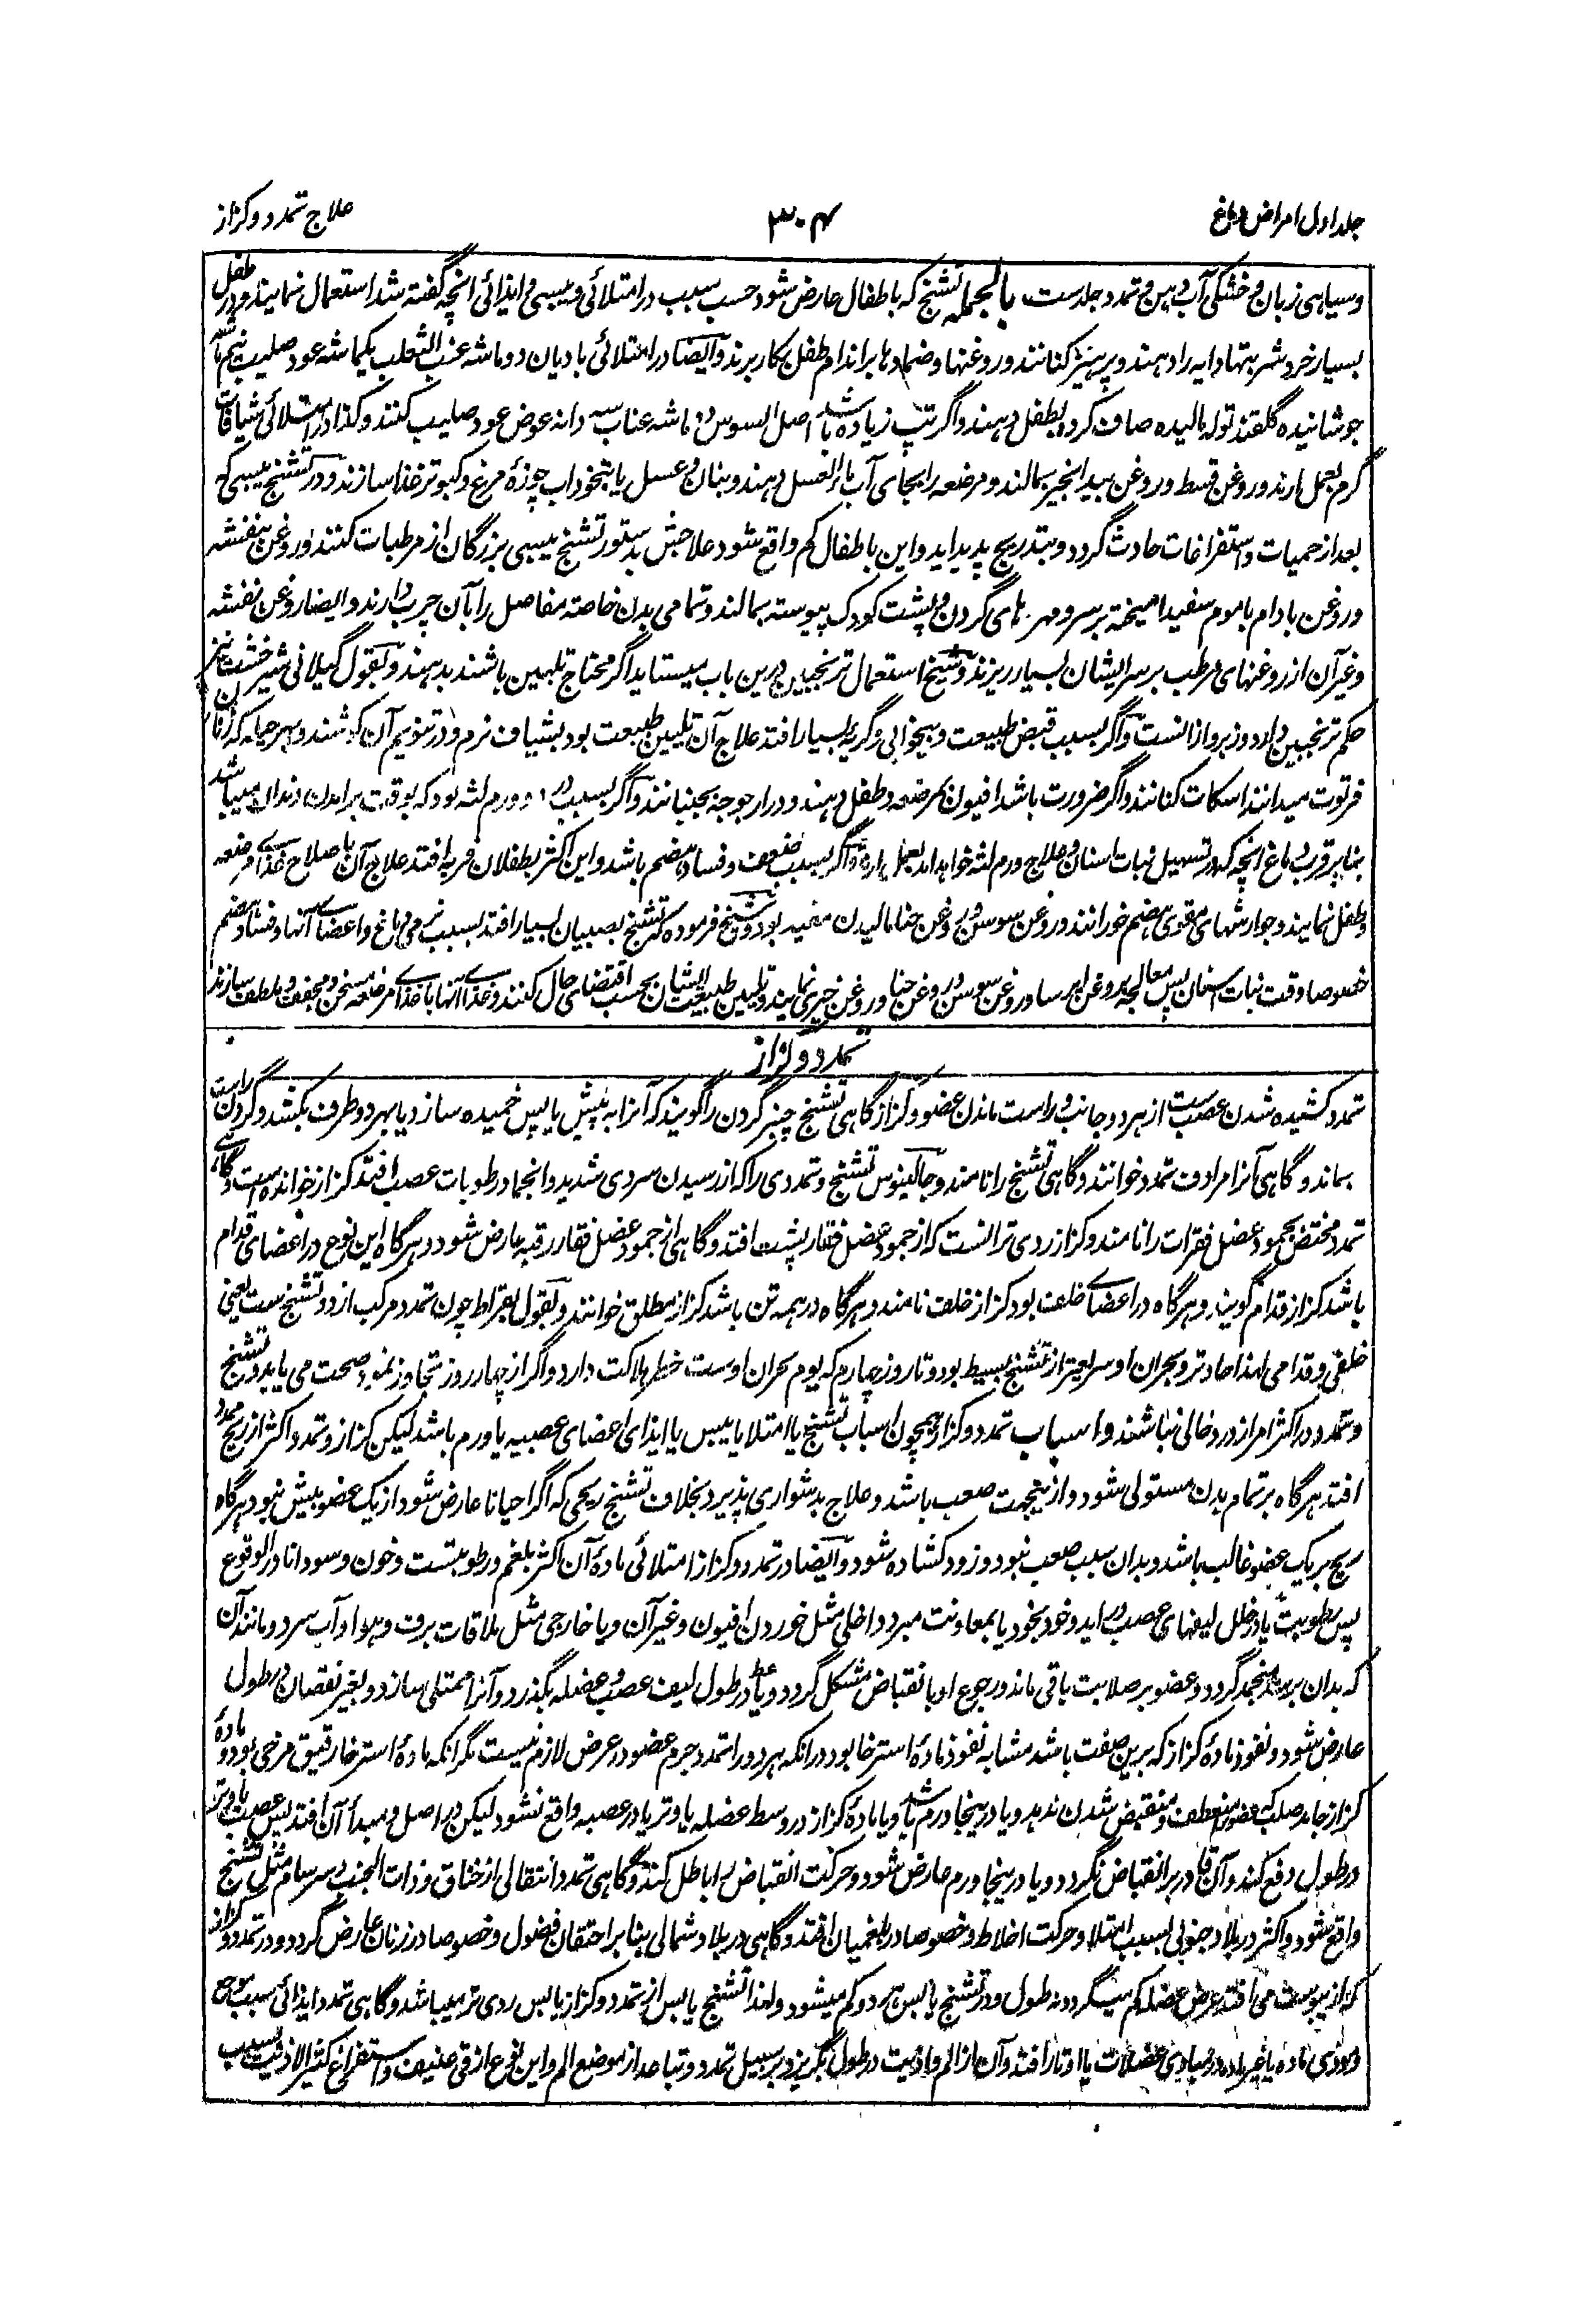 جلد اول امراض دماغ
۳۰۴
علاج تمدد و کزاز
و سیاهی زبان و خشکی آب دهن و تمدد جلدست بالجمله تشنج که باطفال عارض شود حسب سبب در امتلائی و یبسی و ایذائی انچه گفته شد استعمال نمایند و در طفل
بسیار خرد شربتها دایه را دهند و پرهیز کنانند و روغنها و ضمادها بر اندام طفل بکار برند و ایضا در امتلائی بادیان دو ماشه عنب الثعلب یکماشه عود صلیب نیم ماشه
جوشانیده گلقند توله مالیده صاف کرده بطفل دهند و اگر تپ زیاده باشد اصل السوس دو ماشه عناب سه دانه عوض عود صلیب کنند و کذا در امتلائی شیافات
گرم بعمل ارند و روغن قسط و روغن بیدانجیر بمالند و مرضعه را بجای آب ماء العسل دهند و بنان و عسل یا بنخوداب چوزهٔ مرغ و کبوتر غذا سازند و در تشنج یبسی که
بعد از حمیات و استفراغات حادث گردد و بتدریج پدید اید و این باطفال کم واقع شود علاجش بدستور تشنج یبسی بزرگان از مرطبات کنند و روغن بنفشه
و روغن بادام با موم سفید امیخته بر سر و مهرهای گردن و پشت کودک پیوسته بمالند و تمامی بدن خاصته مفاصل را بآن چرب دارند و ایضا روغن بنفشه
و غیر آن از روغنهای مرطب بر سر ایشان بسیار ریزند و شیخ استعمال ترنجبین درین باب میستاید اگر محتاج تلیین باشند بدهند و بقول گیلانی شیر خشت نیز
حکم ترنجبین دارد و زبروازانست و اگر بسبب قبض طبیعت و بیخوابی و گریه بسیار افتد علاج آن تلیین طبیعت بود بشیاف نرم و در تنویم آن کوشند و بهر حیله که زنان
فرتوت میدانند اسکات کنانند و اگر ضرورت باشد افیون بمرضعه و طفل دهند و در ارجوجه بجنبانند و اگر بسبب درد و ورم لثه بود که بوقت برامدن دندان میباشد
بنا بر قرب دماغ انچه که در تسهیل نبات اسنان و علاج ورم لثه خواهد امد بعمل ارند و اگر بسبب ضعف و فساد هضم باشد و این اکثر بطفلان فربه افتد علاج آن باصلاح غذای مرضعه
و طفل نمایند و جوارشهای مقوی هضم خورانند و روغن سوسن و روغن حنا مالیدن مفید بود و شیخ فرموده که تشنج بصبیان بسیار افتد بسبب نرمی دماغ و اعضای آنها و فساد هضم
خصوصا وقت نبات اسنان پس معالجه بروغن ایرسا و روغن سوسن و روغن حنا و روغن خیری نمایند و تلیین طبیعت ایشان بحسب اقتضای حال کنند و غذای آنها با غذای مرضعه مسخن و مجفف و ملطف سازند
تمدد و کزاز
تمدد کشیده شدن عصب ست از هر دو جانب و راست ماندن عضو و کزاز گاهی تشنج چنبر گردن را گویند که آنرا به پیش یا پس خمیده سازد یا بهر دو طرف بکشد و گردن راست
بماند و گاهی آنرا مرادف تمدد خوانند و گاهی تشنج را نامند و جالینوس تشنج و تمددی را که از رسیدن سردی شدید و انجماد رطوبات عصب افتد کزاز خوانده است و گاهی
تمدد مختص بجمود عضل فقرات را نامند و کزاز ردی تر انست که از جمود عضل فقار پشت افتد و گاهی از جمود عضل فقار رقبه عارض شود و هرگاه این نوع در اعضای قدام
باشد کزاز قدام گویند و هرگاه در اعضای خلف بود کزاز خلف نامند و هرگاه در همه تن باشد کزاز مطلق خوانند و بقول بقراط چون تمدد مرکب از دو تشنج ست یعنی
خلفی و قدامی لهذا حادتر و بحران او سریعتر از تشنج بسیط بود و تا روز چهارم که یوم بحران اوست خطر هلاکت دارد و اگر از چهار روز تجاوز نمود صحت می یابد و تشنج
و تمدد در اکثر امر از درد خالی نباشند و اسباب تمدد و کزاز همچون اسباب تشنج یا امتلا یا یبس یا ایذای اعضای عصبیه یا ورم باشد لیکن کزاز و تمدد اکثر از ریح ممدد
افتد هرگاه بر تمام بدن مستولی شود و ازینجهت صعب باشد و علاج بدشواری پذیرد بخلاف تشنج ریحی که اگر احیانا عارض شود از یک عضو بیش نبود هرگاه
ریح بر یک عضو غالب باشد و بدان سبب صعب نبود و زود کشاده شود و ایضا در تمدد و کزاز امتلائی مادهٔ آن اکثر بلغم و رطوبتست و خون و سودا نادر الوقوع
پس رطوبت یا در خلل لیفهای عصب در اید و خود بخود یا بمعاونت مبرد داخلی مثل خوردن افیون و غیر آن و یا خارجی مثل ملاقات برف و هوا و آب سرد و مانند آن
که بدان برسد منجمد گردد و عضو بر صلابت باقی ماند و رجوع او بانقباض مشکل گردد و یا در طول لیف عصب و عضله بگذرد و آنرا ممتلی سازد و بغیر نقصان در طول
عارض شود و نفوذ مادهٔ کزاز که برین صفت باشد مشابه نفوذ مادهٔ استرخا بود در انکه هر دو را تمدد جرم عضو در عرض لازم نیست مگر انکه مادهٔ استرخا رقیق مرخی بود و مادهٔ
کزاز جامد صلب که عضو را منعطف و منقبض شدن ندهد و یا در ینجا ورم باشد و یا مادهٔ کزاز در وسط عضله یا وتر یا در عصبه واقع نشود لیکن در اصل و مبدأ آن افتد پس عصب یا وتر
در طول دفع کند و آن قادر بر انقباض نگردد و یا در ینجا ورم عارض شود و حرکت انقباض را باطل کند و گاهی تمدد انتقالی از خناق و ذات الجنب و سرسام مثل تشنج
واقع شود و اکثر در بلاد جنوبی بسبب امتلا و حرکت اخلاط و خصوصا در بلغمیان افتد و گاهی در بلاد شمالی بنا بر احتقان فضول و خصوصا در زنان عارض گردد و در تمدد و کزاز
که از یبوست می افتد عرض عضله کم میگردد نه طول و در تشنج یابس هر دو کم میشود و لهذا تشنج یابس از تمدد و کزاز یابس ردی تر میباشد و گاهی تمدد ایذائی بسبب
ماده یا غیر ماده در مبادی عضلات یا اوتار افتد و آن از الم و اذیت در طول بگریزد بر سبیل تمدد و تباعد از موضع الم و این نوع از قی عنیف و استفراغ کثیر الاذیت بسبب